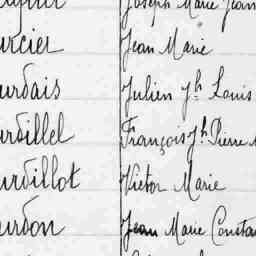 Joseph Marie Jean
urcier Jean Marie
urdais Julien Jh Louis
urdillel François Jh Pierre
urdillot Victor Marie
urdon Jean Marie Consta